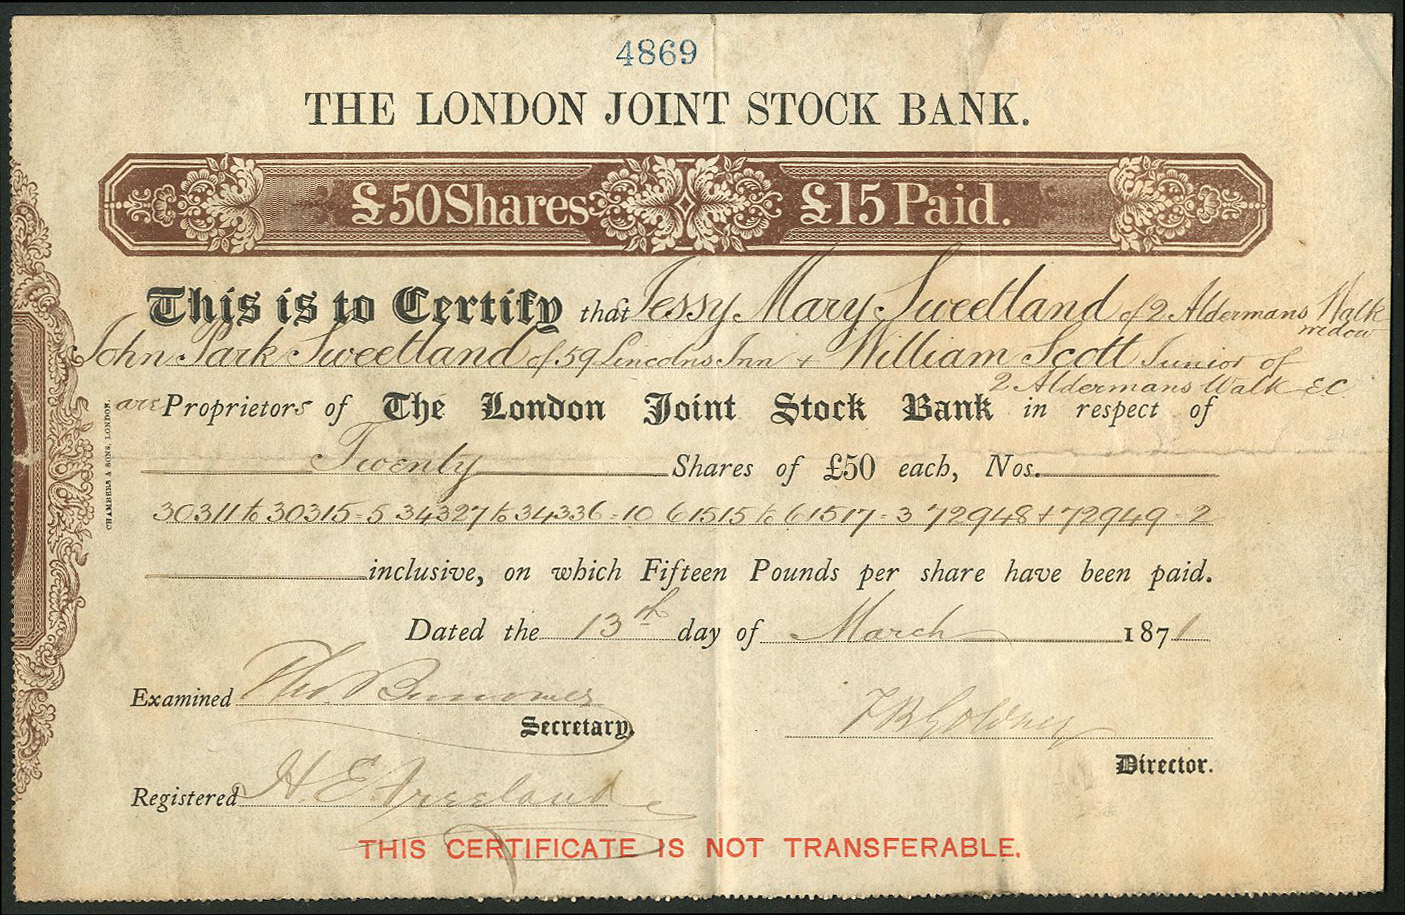 4869
THE LONDON JOINT STOCK BANK.
£50 Shares £15 Paid.
This is to Certify that Jessy Mary Sweetland of 2 Aldermans Walk
widow
John Park Sweetland of 59 Lincolns Inn + William Scott Junior of
2 Aldermans Walk EC
are Proprietors of The London Joint Stock Bank in respect of
Twenty Shares of £50 each, Nos.
30311 to 30315-5 34327 to 34336-10 61515 to 61517-3 72948+72949-2
inclusive, on which Fifteen Pounds per share have been paid.
Dated the 13th day of March 1871
Examined
Secretary.
F B Goldney
Director.
Registered H. E. Freeland
THIS CERTIFICATE IS NOT TRANSFERABLE.
CHAMBERS & SONS, LONDON.